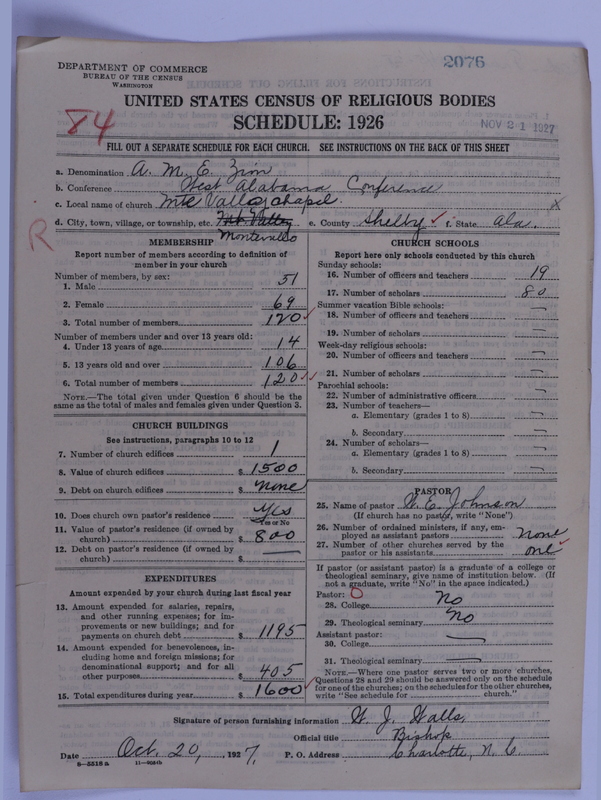 2076
DEPARTMENT OF COMMERCE
BUREAU OF THE CENSUS
WASHINGTON
UNITED STATES CENSUS OF RELIGIOUS BODIES
84
SCHEDULE: 1926
NOV 21 1927
FILL OUT A SEPARATE SCHEDULE FOR EACH CHURCH. SEE INSTRUCTIONS ON THE BACK OF THIS SHEET
a. Denomination A. M. E. Zion
b. Conference West Alabama Conference
c. Local name of church Mte Valls chapel. x
d. City, town, village, or township, etc. e. County Shelby ✓ f. State Ala.
Montevallo
R
MEMBERSHIP
Report number of members according to definition of
member in your church
Number of members, by sex:
1. Male 51
2. Female 69
3. Total number of members 120 ✓
Number of members under and over 13 years old:
4. Under 13 years of age 14
5. 13 years old and over 106
6. Total number of members 120 ✓✓
NOTE.—The total given under Question 6 should be
same as the total of males and females given under Question 3.
CHURCH BUILDINGS
See instructions, paragraphs 10 to 12
7. Number of church edifices 1
8. Value of church edifices $ 1500
9. Debt on church edifices $ none
10. Does church own pastor's residence yes
Yes or No
11. Value of pastor's residence (if owned by
church) $ 800
12. Debt on pastor's residence (if owned by
church) $ —
EXPENDITURES
Amount expended by your church during last fiscal year
13. Amount expended for salaries, repairs,
and other running expenses; for im-
provements or new buildings; and for
payments on church debt $ 1195
14. Amount expended for benevolences, in-
cluding home and foreign missions; for
denominational support; and for all
other purposes $ 405
15. Total expenditures during year $ 1600 ✓
CHURCH SCHOOLS
Report here only schools conducted by this church
Sunday schools:
16. Number of officers and teachers 19
17. Number of scholars 80
Summer vacation Bible schools:
18. Number of officers and teachers —
19. Number of scholars —
Week-day religious schools:
20. Number of officers and teachers —
21. Number of scholars —
Parochial schools:
22. Number of administrative officers —
23. Number of teachers—
a. Elementary (grades 1 to 8) —
b. Secondary —
24. Number of scholars—
a. Elementary (grades 1 to 8) —
b. Secondary —
PASTOR
25. Name of pastor W. C. Johnson
(If church has no pastor, write "None")
26. Number of ordained ministers, if any, em-
ployed as assistant pastors none
27. Number of other churches served by the
pastor or his assistants one ✓
If pastor (or assistant pastor) is a graduate of a college or
theological seminary, give name of institution below. (If
not a graduate, write "No" in the space indicated.)
Pastor: 0
28. College No
29. Theological seminary No
Assistant pastor:
30. College —
31. Theological seminary —
NOTE.—Where one pastor serves two or more churches,
Questions 28 and 29 should be answered only on the schedule
for one of the churches; on the schedules for the other churches,
write "See schedule for church."
Signature of person furnishing information W. J. Walls,
Official title Bishop
Date Oct. 20, , 1927. P. O. Address Charlotte, N. C.
8—5518a 11—9054b